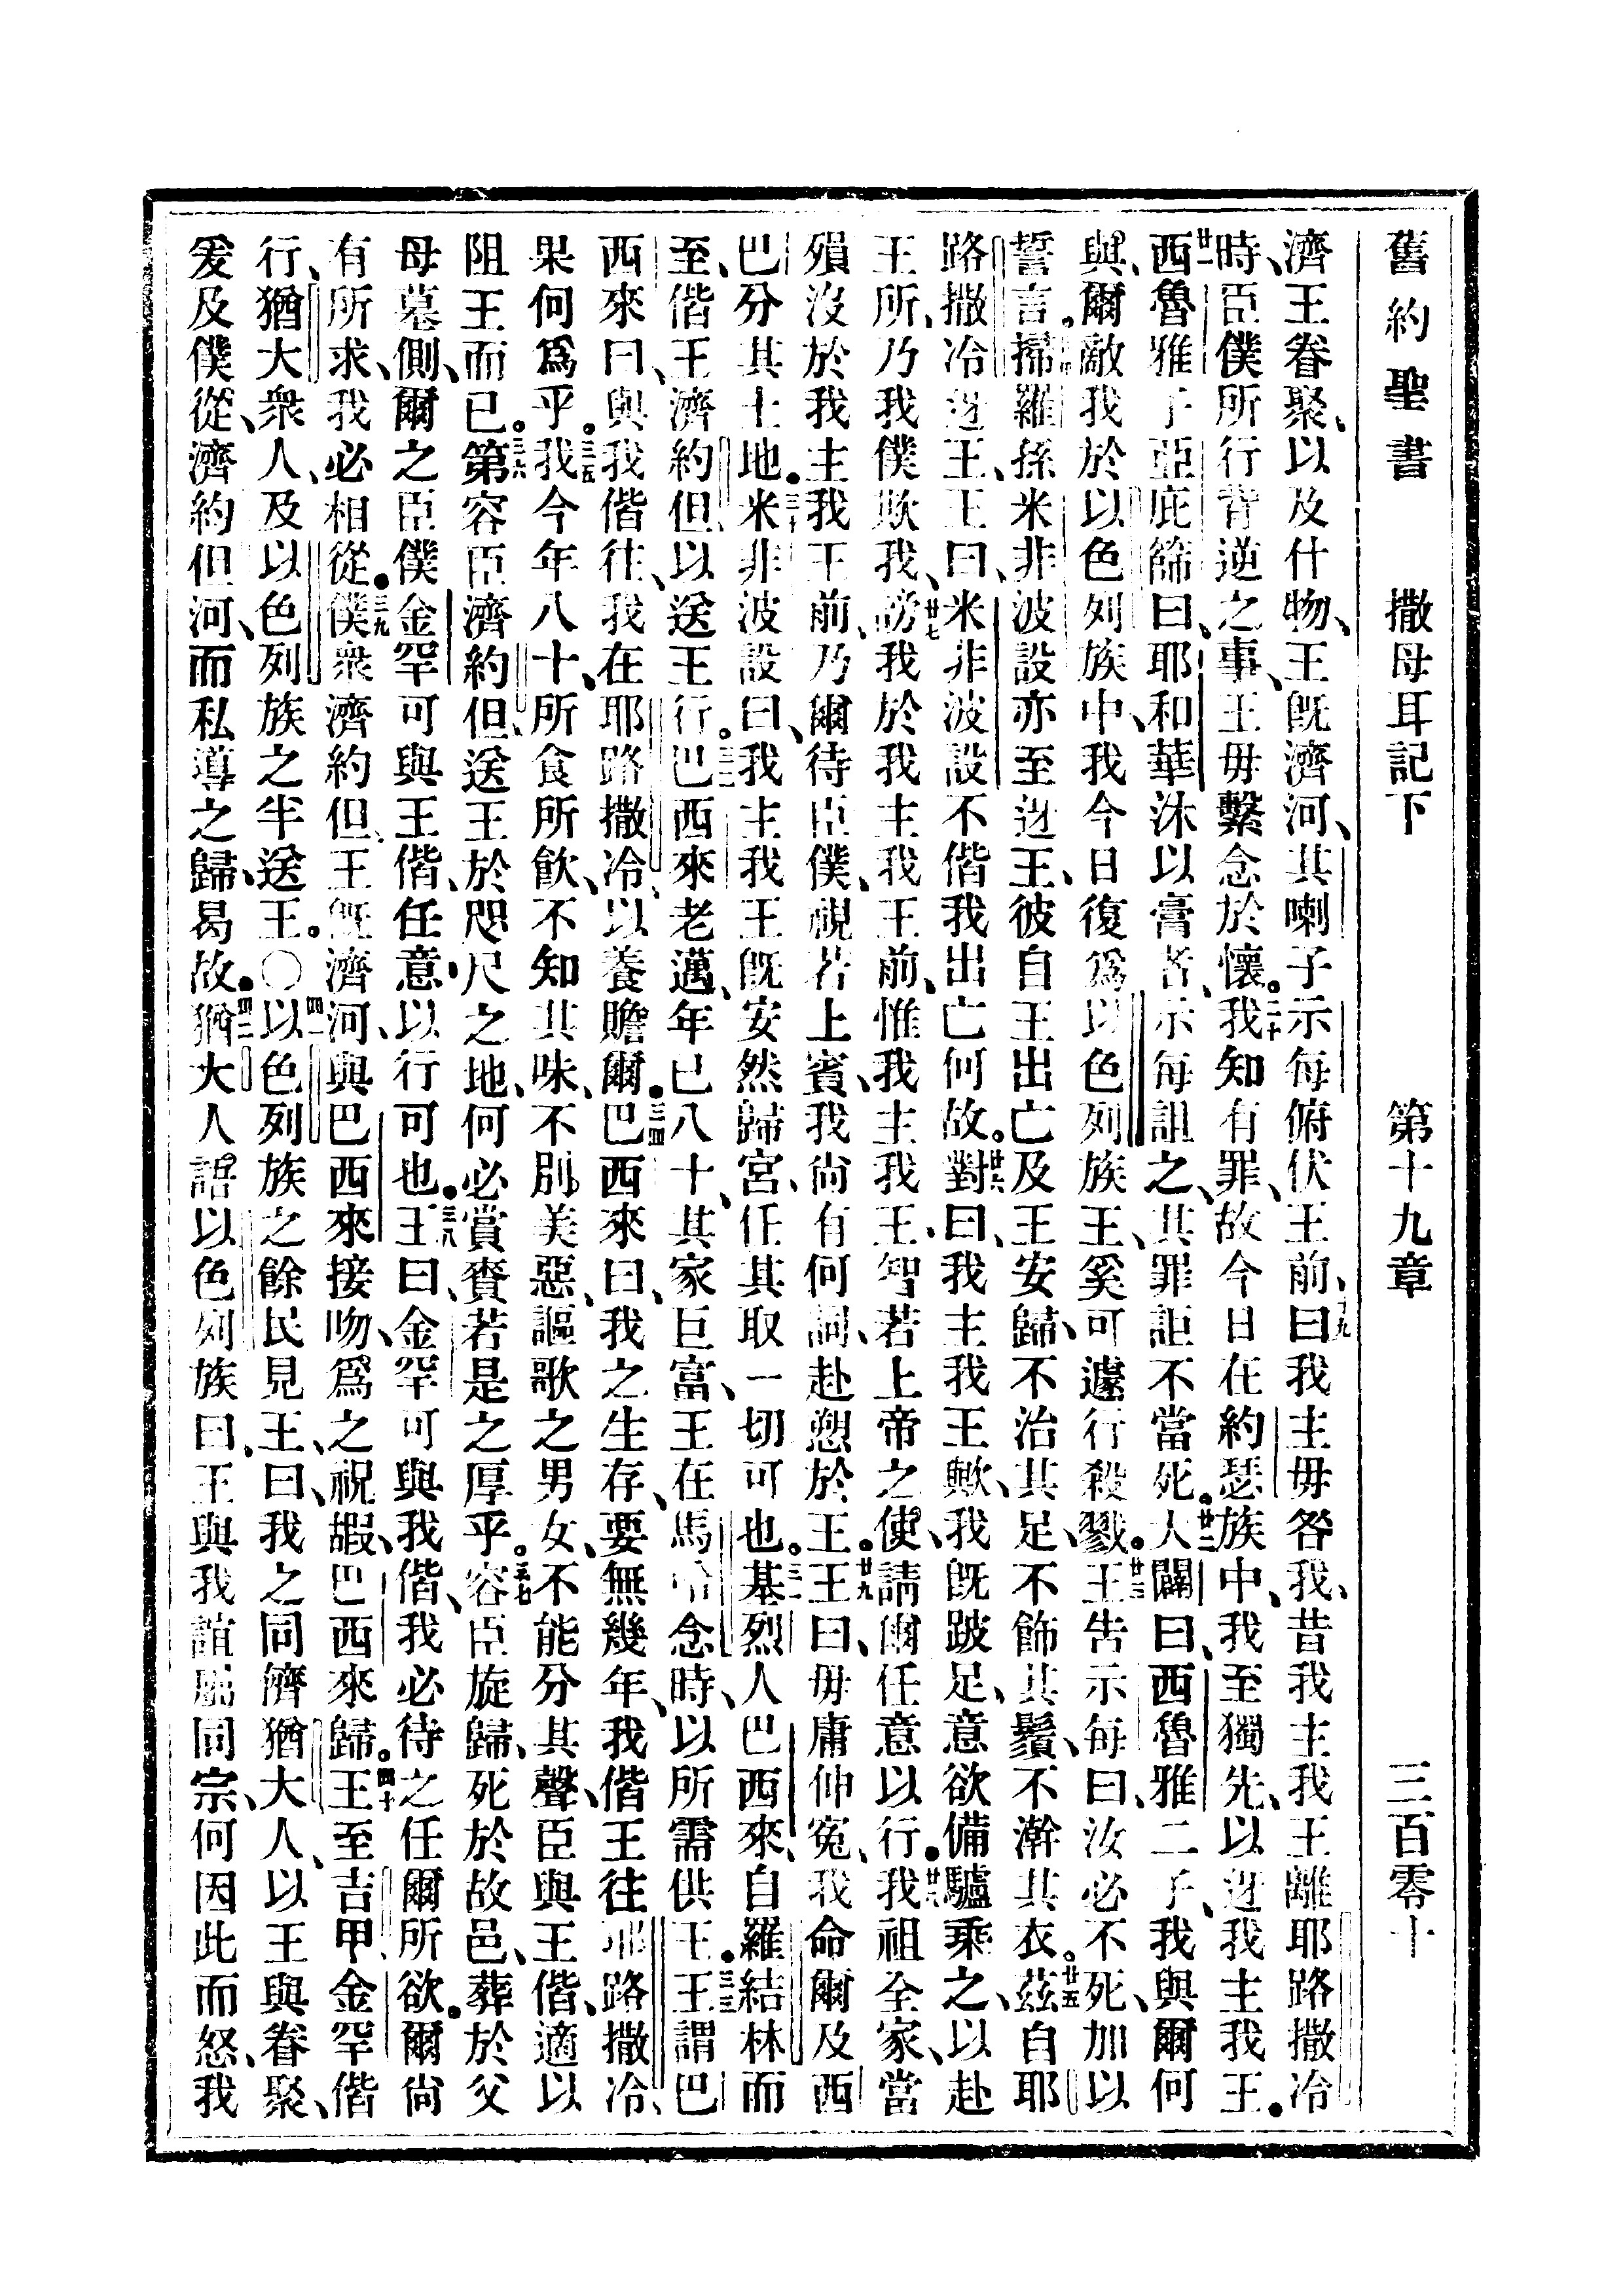 舊約聖書 撒母耳記下 第十九章 三百零十
濟王眷聚、以及什物、王既濟河、其喇子示每俯伏王前、十九曰我主毋咎我、昔我主我王離耶路撒冷
時、臣僕所行背逆之事、王毋繫念於懷。二十我知有罪、故今日在約瑟族中、我至獨先、以迓我主我王。
廿一西魯雅子亞庇篩曰、耶和華沐以膏者、示每詛之、其罪詎不當死。廿二大闢曰、西魯雅二子、我與爾何
與、爾敵我於以色列族中、我今日復爲以色列族王、奚可遽行殺戮。廿三王告示每曰、汝必不死、加以
誓言。掃羅孫米非波設亦至迓王、彼自王出亡、及王安歸、不治其足、不飾其鬚、不澣其衣。廿五茲自耶
路撒冷迓王、王曰、米非波設不偕我出亡何故。廿六對曰、我主我王歟、我既跛足、意欲備驢乘之、以赴
王所、乃我僕欺我、廿七謗我於我主我王前、惟我主我王、智若上帝之使、請爾任意以行。廿八我祖全家、當
殞沒於我主我王前、乃爾待臣僕、視若上賓、我尚有何詞、赴愬於王。廿九王曰、毋庸伸寃、我命爾及西
巴分其土地。三十米非波設曰、我主我王既安然歸宮、任其取一切可也。三一基烈人巴西來、自羅結林而
至、偕王濟約但、以送王行。三二巴西來老邁、年已八十、其家巨富、王在馬哈念時、以所需供王。三三王謂巴
西來曰、與我偕往、我在耶路撒冷、以養贍爾。三四巴西來曰、我之生存、要無幾年、我偕王往耶路撒冷、
果何爲乎。三五我今年八十、所食所飲、不知其味、不別美惡、謳歌之男女、不能分其聲、臣與王偕、適以
阻王而已。三六第容臣濟約但、送王於咫尺之地、何必賞賚若是之厚乎。三七容臣旋歸、死於故邑、葬於父
母墓側、爾之臣僕金罕可與王偕、任意以行可也。三八王曰、金罕可與我偕、我必待之任爾所欲。爾尚
有所求、我必相從。三九僕衆濟約但、王既濟河、與巴西來接吻、爲之祝嘏、巴西來歸。四十王至吉甲、金罕偕
行、猶大衆人、及以色列族之半送王。○四一以色列族之餘民見王、曰、我之同儕猶大人、以王與眷聚、
爰及僕從、濟約但河、而私導之歸、曷故。四二猶大人語以色列族曰、王與我誼屬同宗、何因此而怒、我